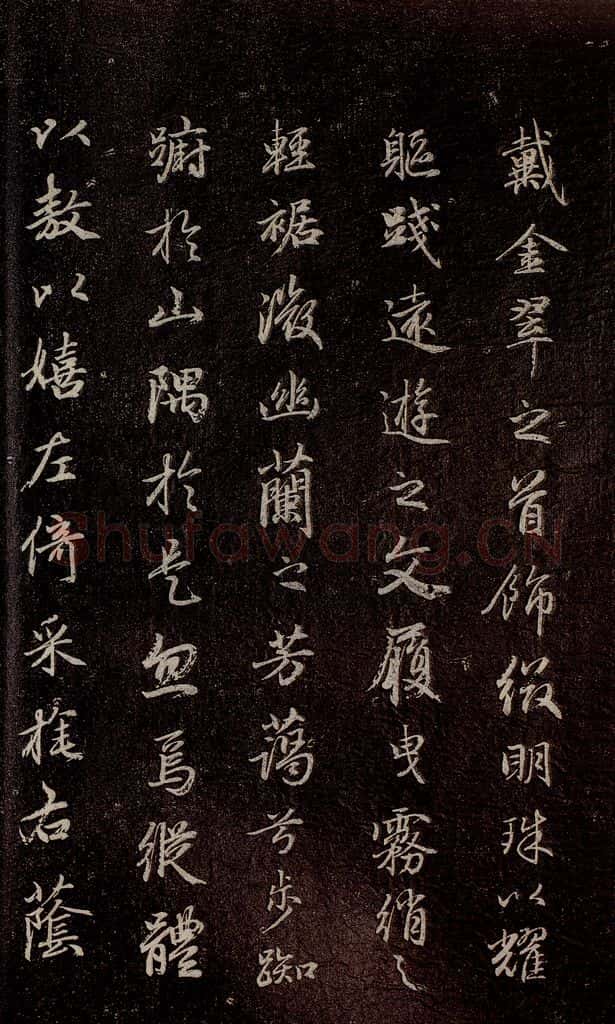 戴金翠之首飾綴明珠以耀
軀踐遠遊之文履曳霧綃之
輕裾微幽蘭之芳藹兮步踟
躕於山隅於是忽焉縱體
以敖以嬉左倚采旄右蔭
Shufawang.CN